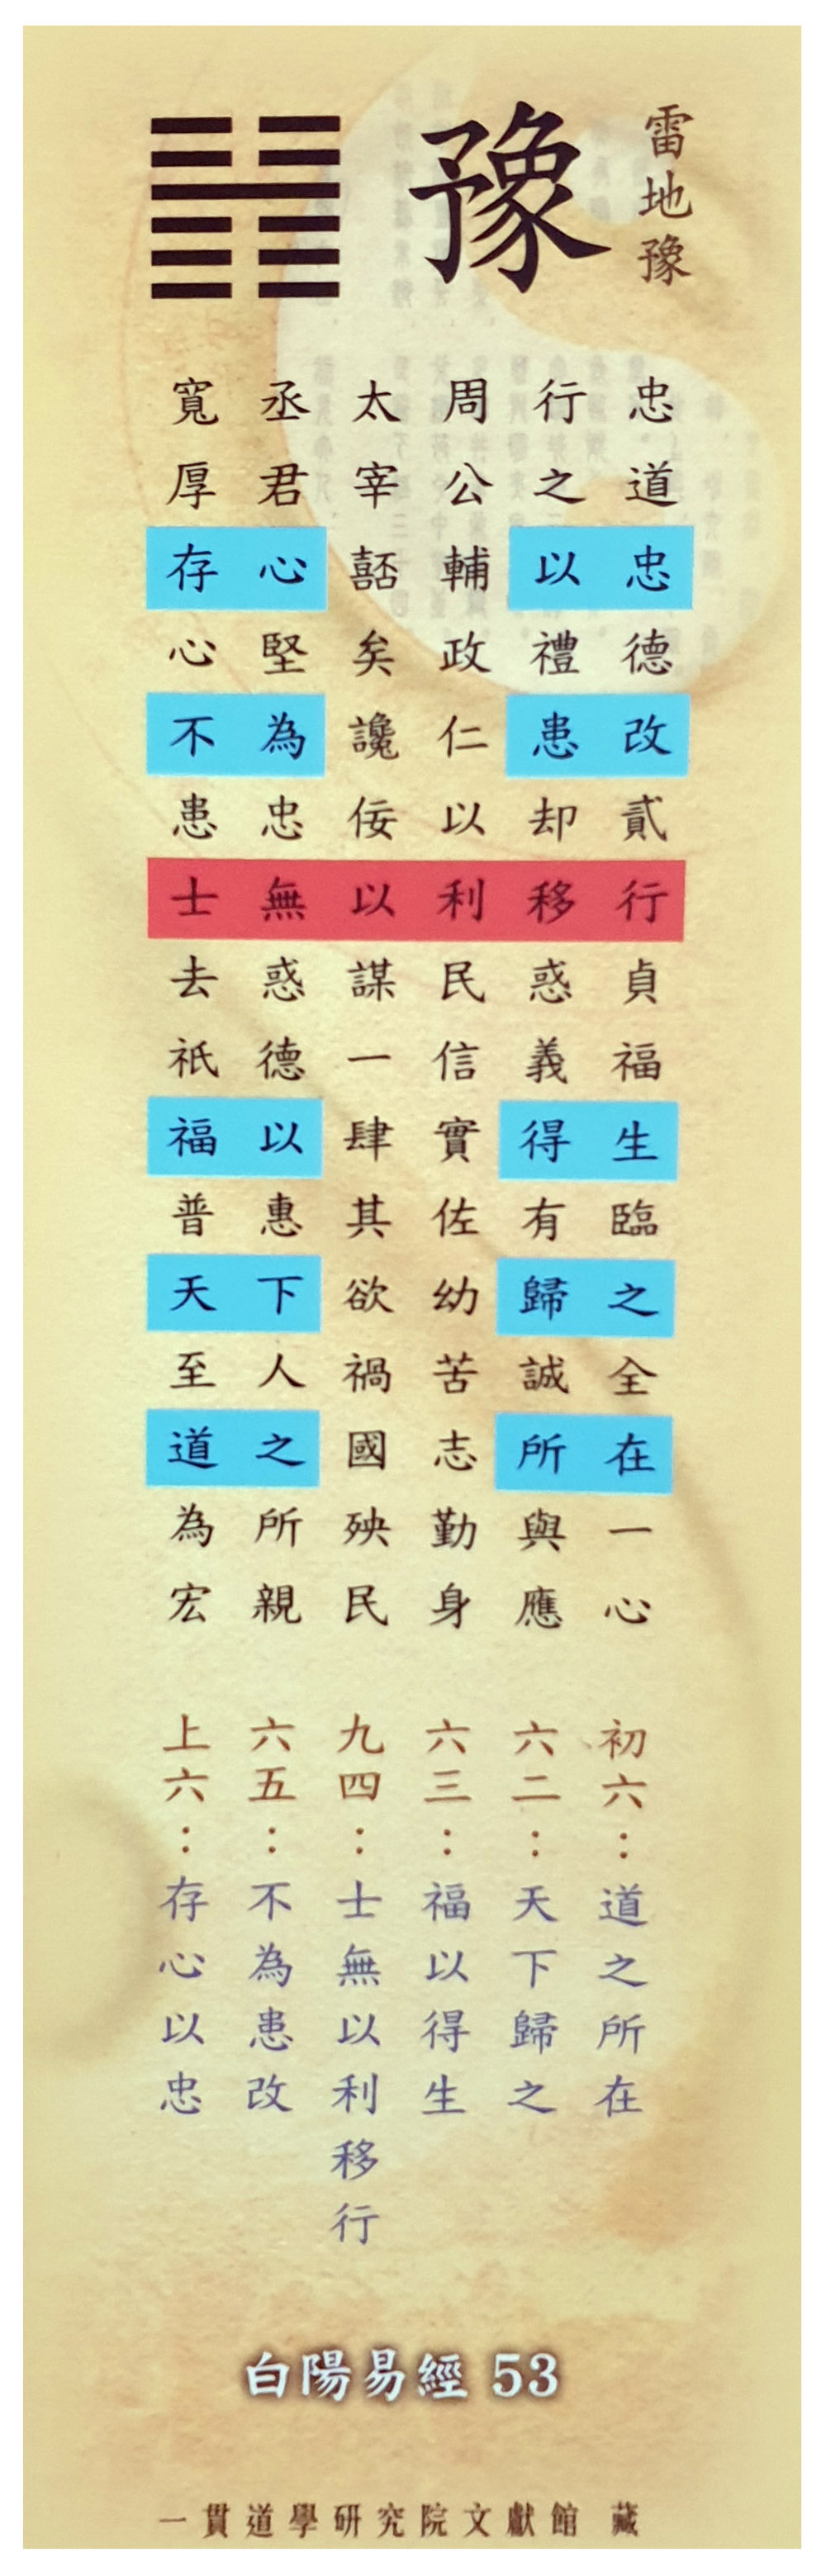 雷地豫
豫
忠道忠德改貳行貞福生臨之全在一心
行之以禮患却移惑義得有歸誠所與應
周公輔政仁以利民信實佐幼苦志勤身
太宰嚭矣讒佞以謀一肆其欲禍國殃民
丞君心堅為忠無惑德以惠下人之所親
寬厚存心不患士去祇福普天至道為宏
初六：道之所在
六二：天下歸之
六三：福以得生
九四：士無以利移行
六五：不為患改
上六：存心以忠
白陽易經 53
一貫道學研究院文獻館 藏